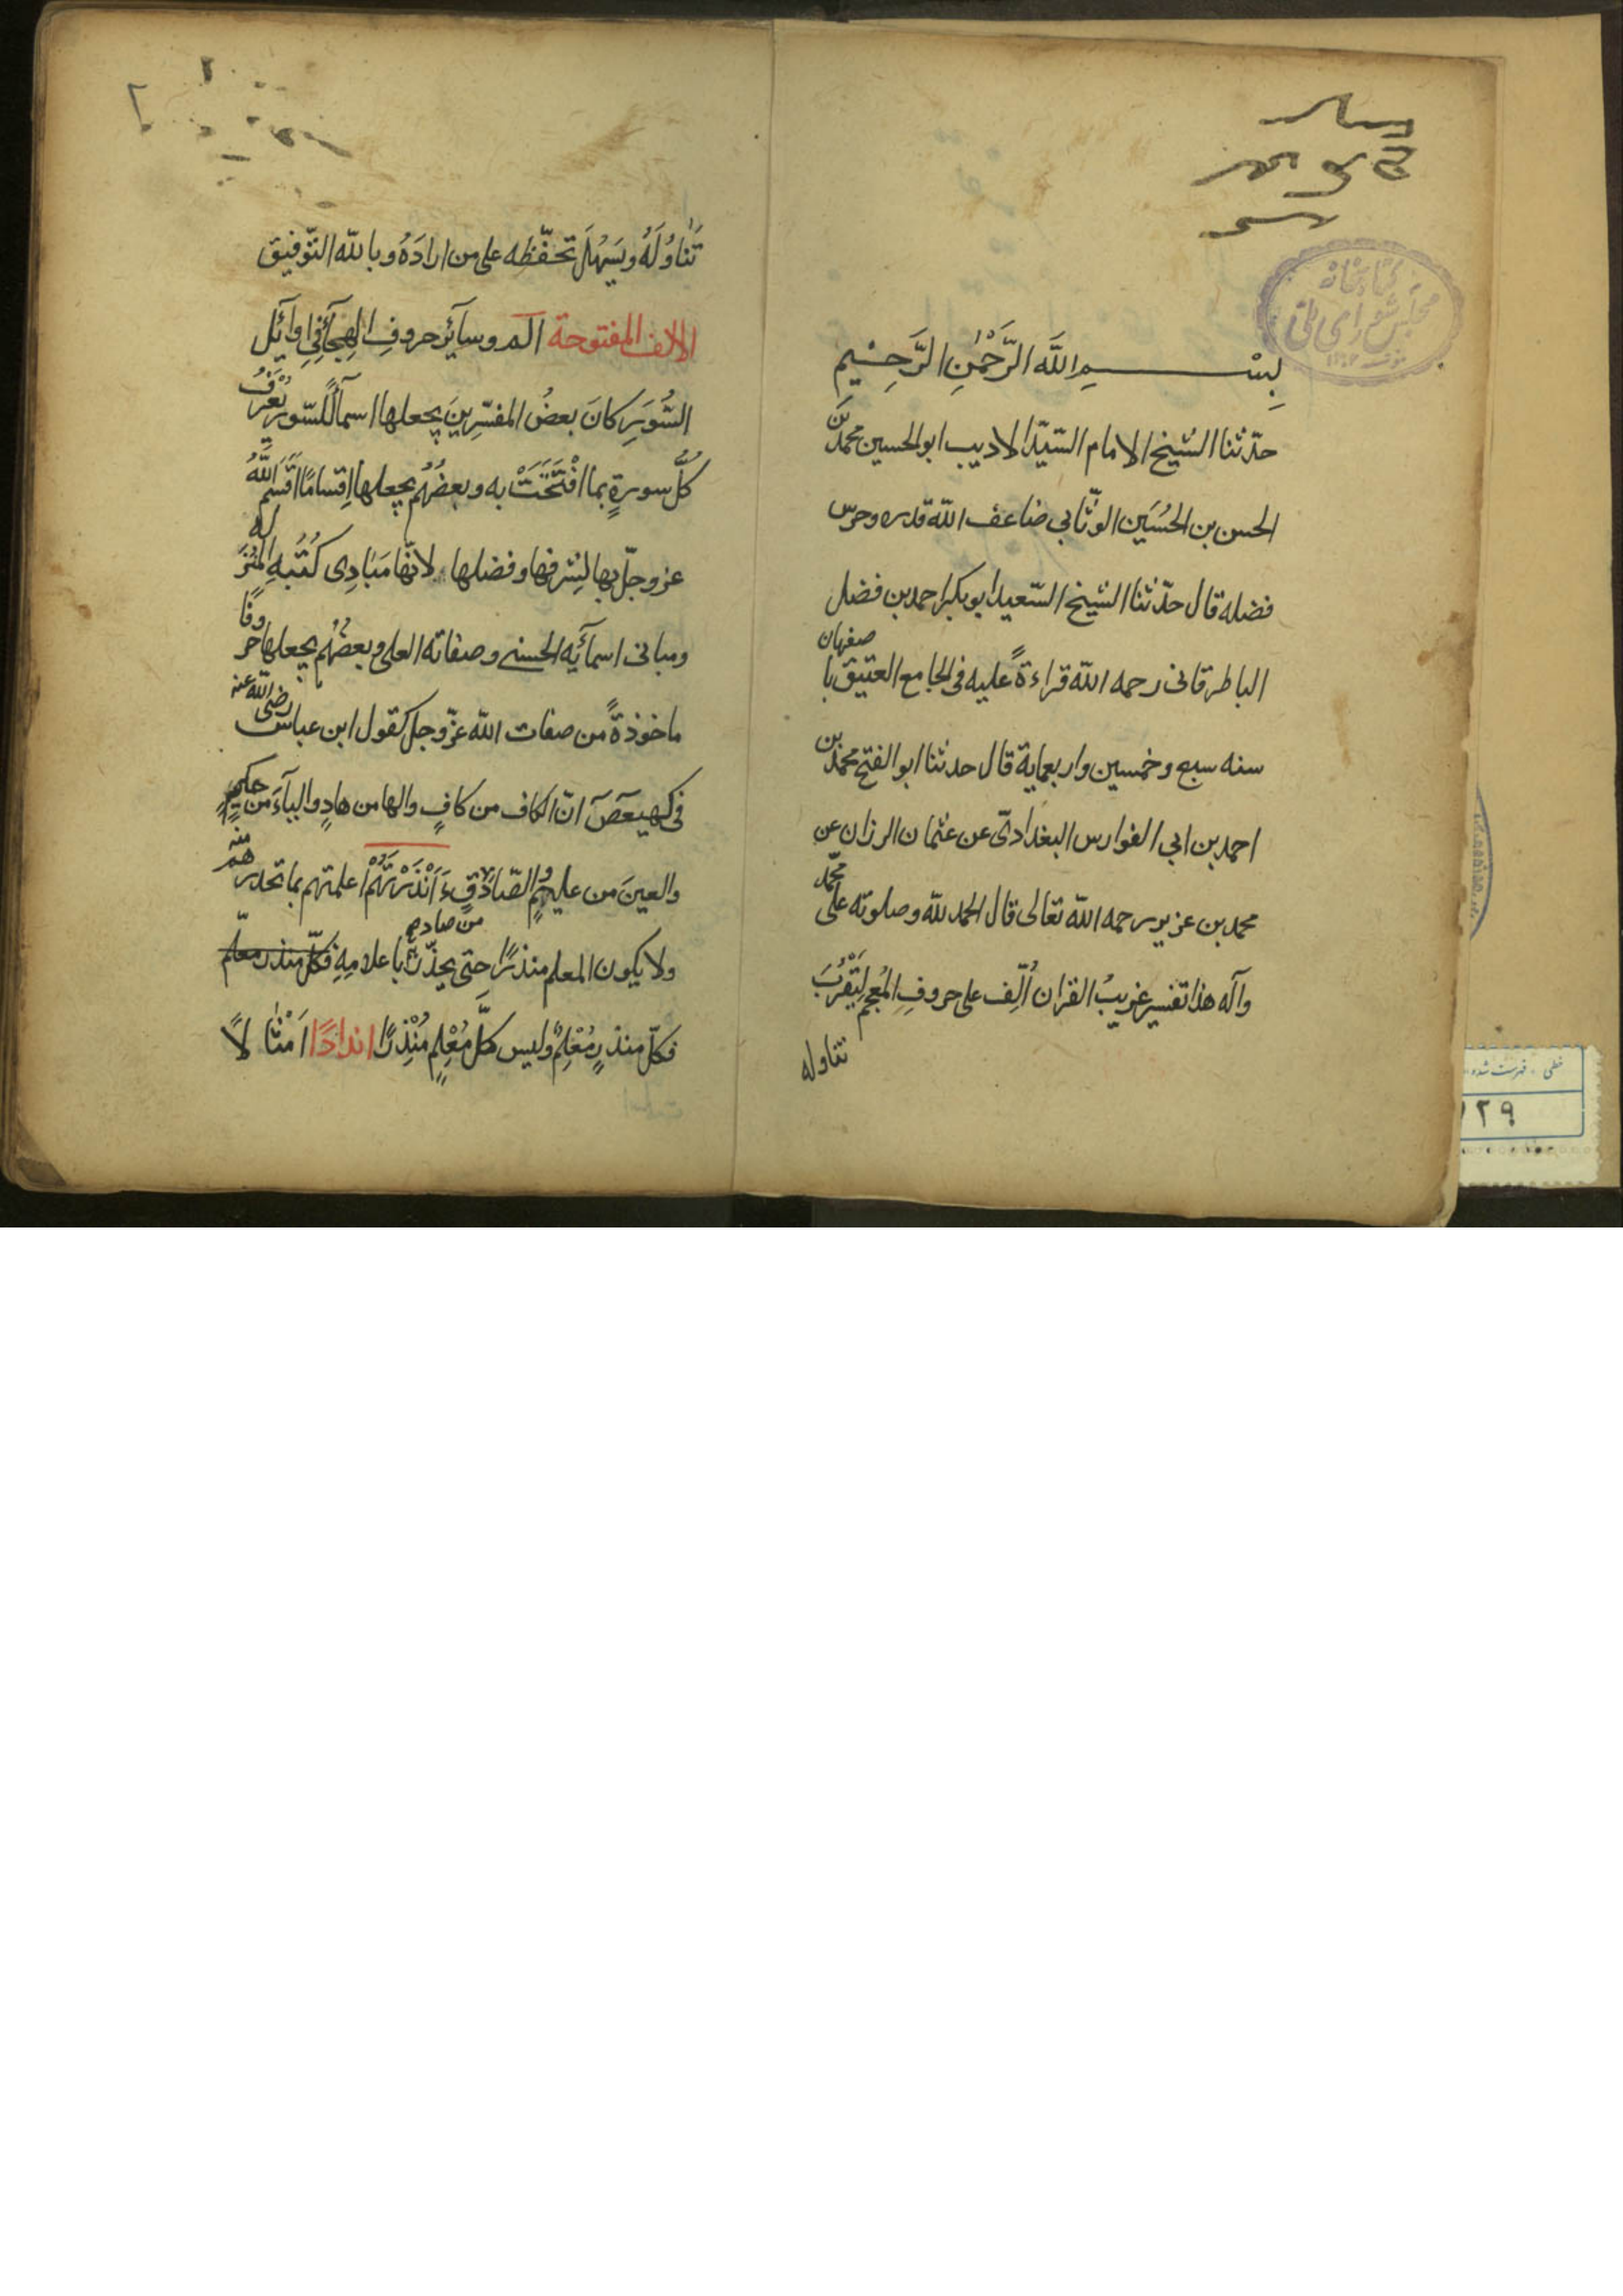 كتابخانه
مجلس شورای ملی
بِسْمِ اللَّهِ الرَّحْمٰنِ الرَّحِيمِ
حدّثنا الشيخ الامام السّيّد الاديب ابو الحسين محمد بن
الحسن بن الحُسَين الوثّابي ضاعف الله قدره وحرس
فضله قال حدّثنا الشيخ السّعيد ابو بكر احمد بن فضل
الباطرقانى رحمه الله قراءةً عليه فى الجامع العتيق باصفهان
سنه سبع وخمسين واربعماية قال حدثنا ابو الفتح محمد بن
احمد بن ابي الفوارس البغدادىّ عن عثمان الرزان عن
محمد بن عزير رحمه الله تعالى قال الحمد لله وصلوته على محمّد
وآله هذا تفسير غريبُ القران اُلّف على حروفِ المُعجم لِيَقْرُبَ
تناوله
تَناوُلُهُ ويَسَهُلَ تحفّظه على من ارادَهُ وبالله التّوفيق
الالف المفتوحة الم وسآئر حروفِ الهِجآءِ فى اوآئل
السُّوَرِ كانَ بعضُ المفسّرِينَ يجعلها اسمآءً للسّور يُعْرَفُ
كلُّ سورةٍ بما افْتَتَحَتْ به وبعضُهُم يجعلها اقسامًا اَقْسَمَ اللَّهُ
عز وجلّ بها لِشرفها وفضلها لانّها مَبَادِى كُتُبِهِ المُنْزَله
ومبانى اسمآئِه الحسنى وصفاته العلى وبعضُهُم يجعلها حروفًا
ماخوذةً من صفات الله عزّ وجل كقول ابن عباس رضى الله عنه
فى كهيعص انّ الكاف من كافٍ والها من هادٍ واليآءَ من حكيمٍ
والعينَ من عليمٍ والصّادَ من صادقٍ ءَاَنْذَرْتَهُمْ اعلمتهم بما تحذرهم منه
ولا يكون المعلم منذرًا حتى يحذّر باعلامِهِ فكلّ منذر معلم
فكلّ منذرٍ مُعْلِمٌ وليس كلُّ مُعْلِمٍ مُنْذِرًا اندادًا اَمْثَالًا
خطى - فهرست شده